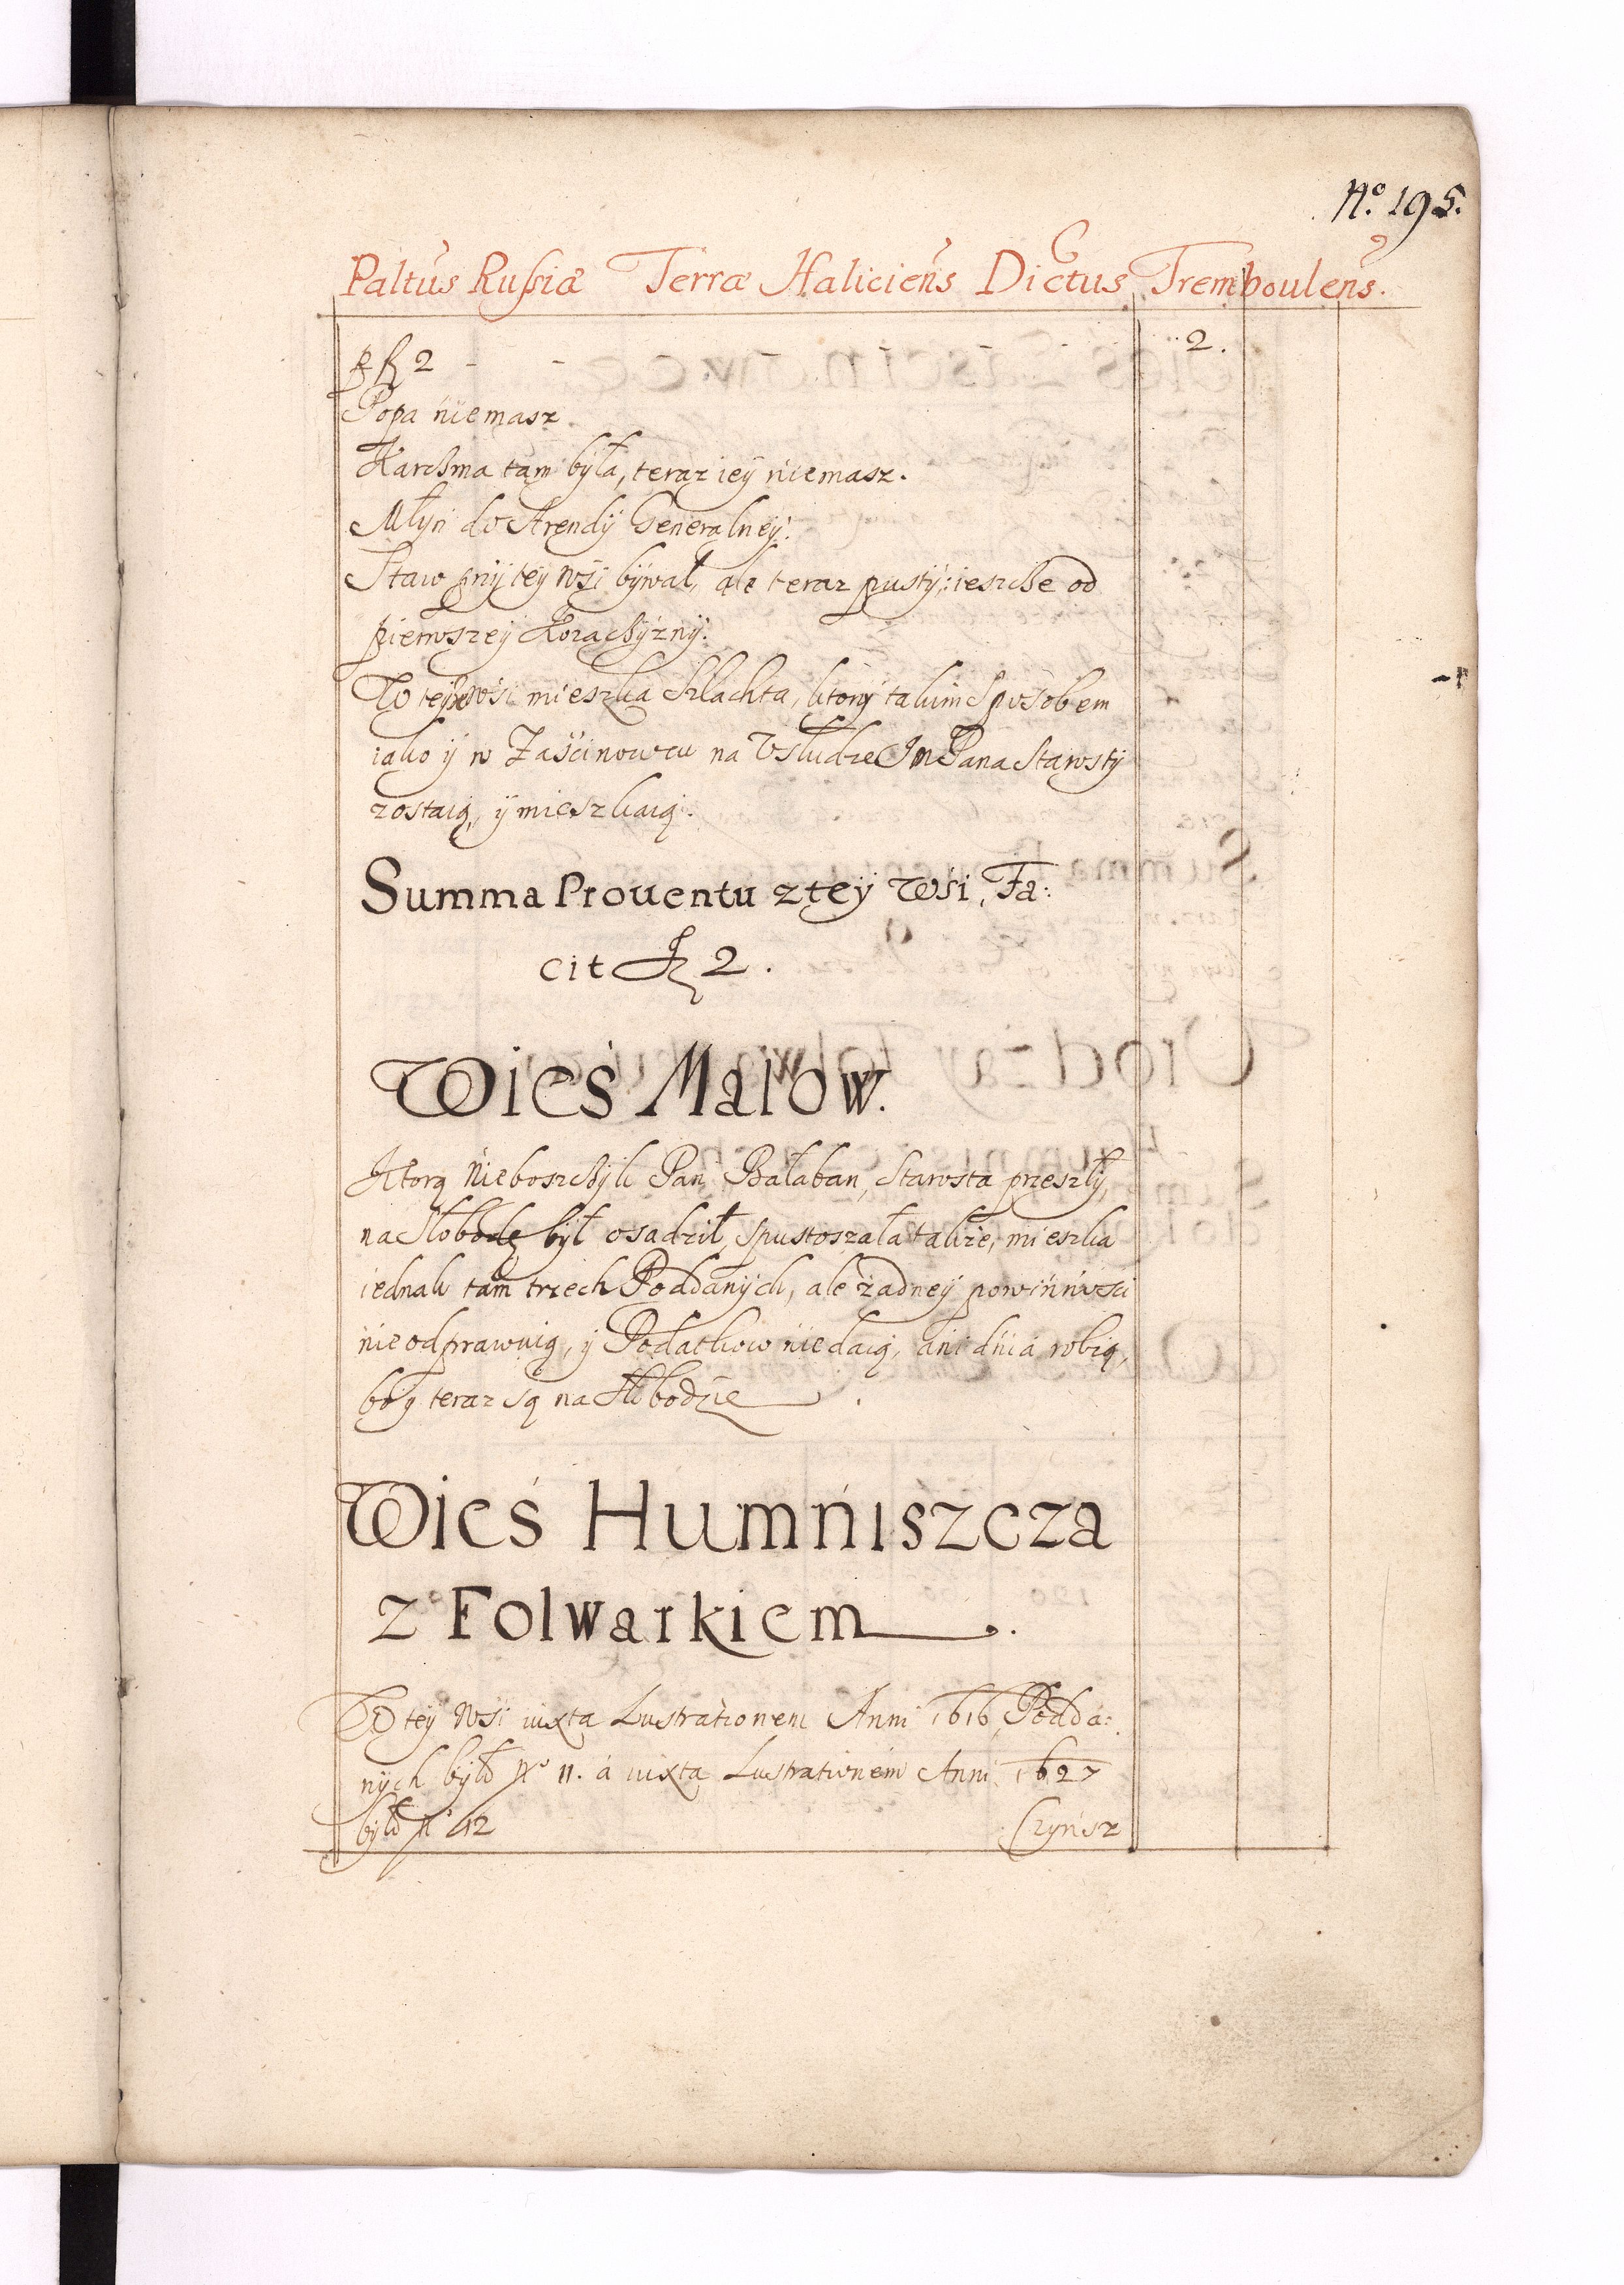 No. 195.
Paltus Russiæ Terræ Haliciens Dictus Tremboulens.
fl 2 - - 2.
Popa niemasz.
Karczma tam była, teraz ieÿ niemasz.
Młyn do Arendÿ Generalneÿ.
Staw przÿ teÿ wsi bÿwał, ale teraz pustÿ, ieszcze od
pierwszeÿ Kozaczÿznÿ.
W teÿ wsi mieszka Szlachta, którÿ takim sposobem
iako ÿ w Zaścinowcu na Vsłudze Pana Starostÿ
zostaią, ÿ mieszkaią.
Summa Prouentu z teÿ Wsi, Fa:
cit fl 2.
Wieś Małow.
Ktorą nieboszczÿk Pan Bałaban, Starosta przeszłÿ,
na Słobodę bÿł osadził, spustoszała także, mieszka
iednak tam trzech Poddanÿch, ale żadneÿ powinności
nie odprawuią, ÿ Podatkow nie daią, ani dnia robią,
bo ÿ teraz są na Słobodzie.
Wieś Humniszcza
z Folwarkiem.
W teÿ Wsi iuxta Lustrationem Anni 1616 Podda:
nÿch bÿło No 11. a iuxta Lustrationem Anni 1627
bÿło No 42 Czÿnsz